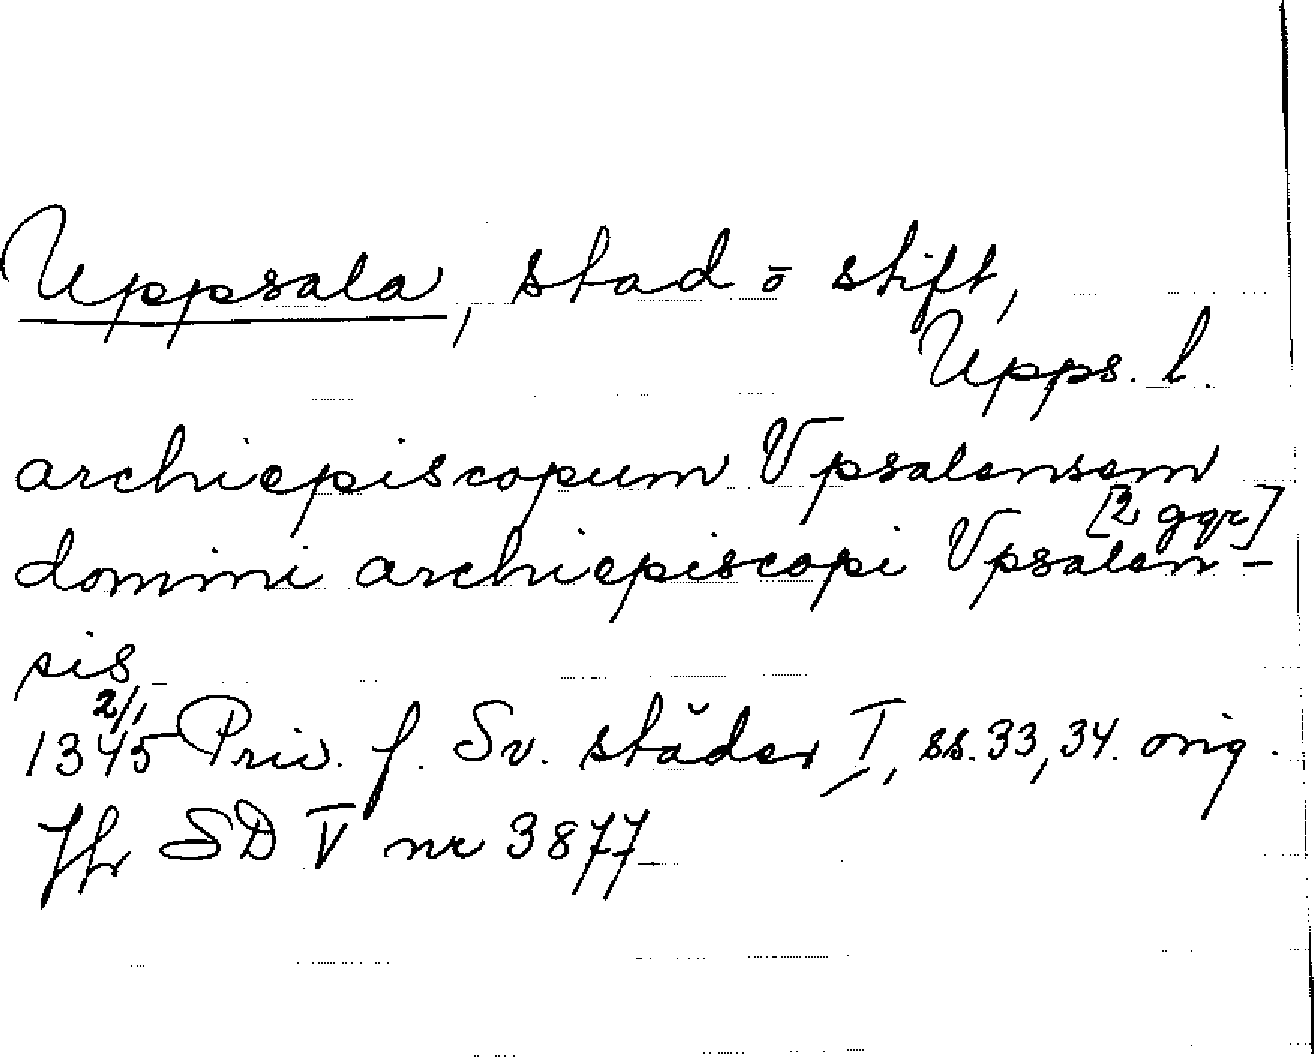 Uppsala, stad o stift,
Upps. l.
archiepiscopum Vpsalensem
[2 ggr]
domini archiepiscopi Vpsalen-
sis
2/1
1345 Priv. f. Sv. städer I, ss. 33, 34. orig.
Jfr SD V nr 3877